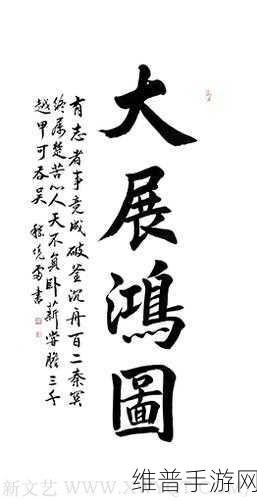 大展鴻圖
有志者事竟成破釜沉舟百二秦
終屬楚苦心人天不負卧薪嘗膽三千
越甲可吞吴 書
新文艺 www.x
维普手游网